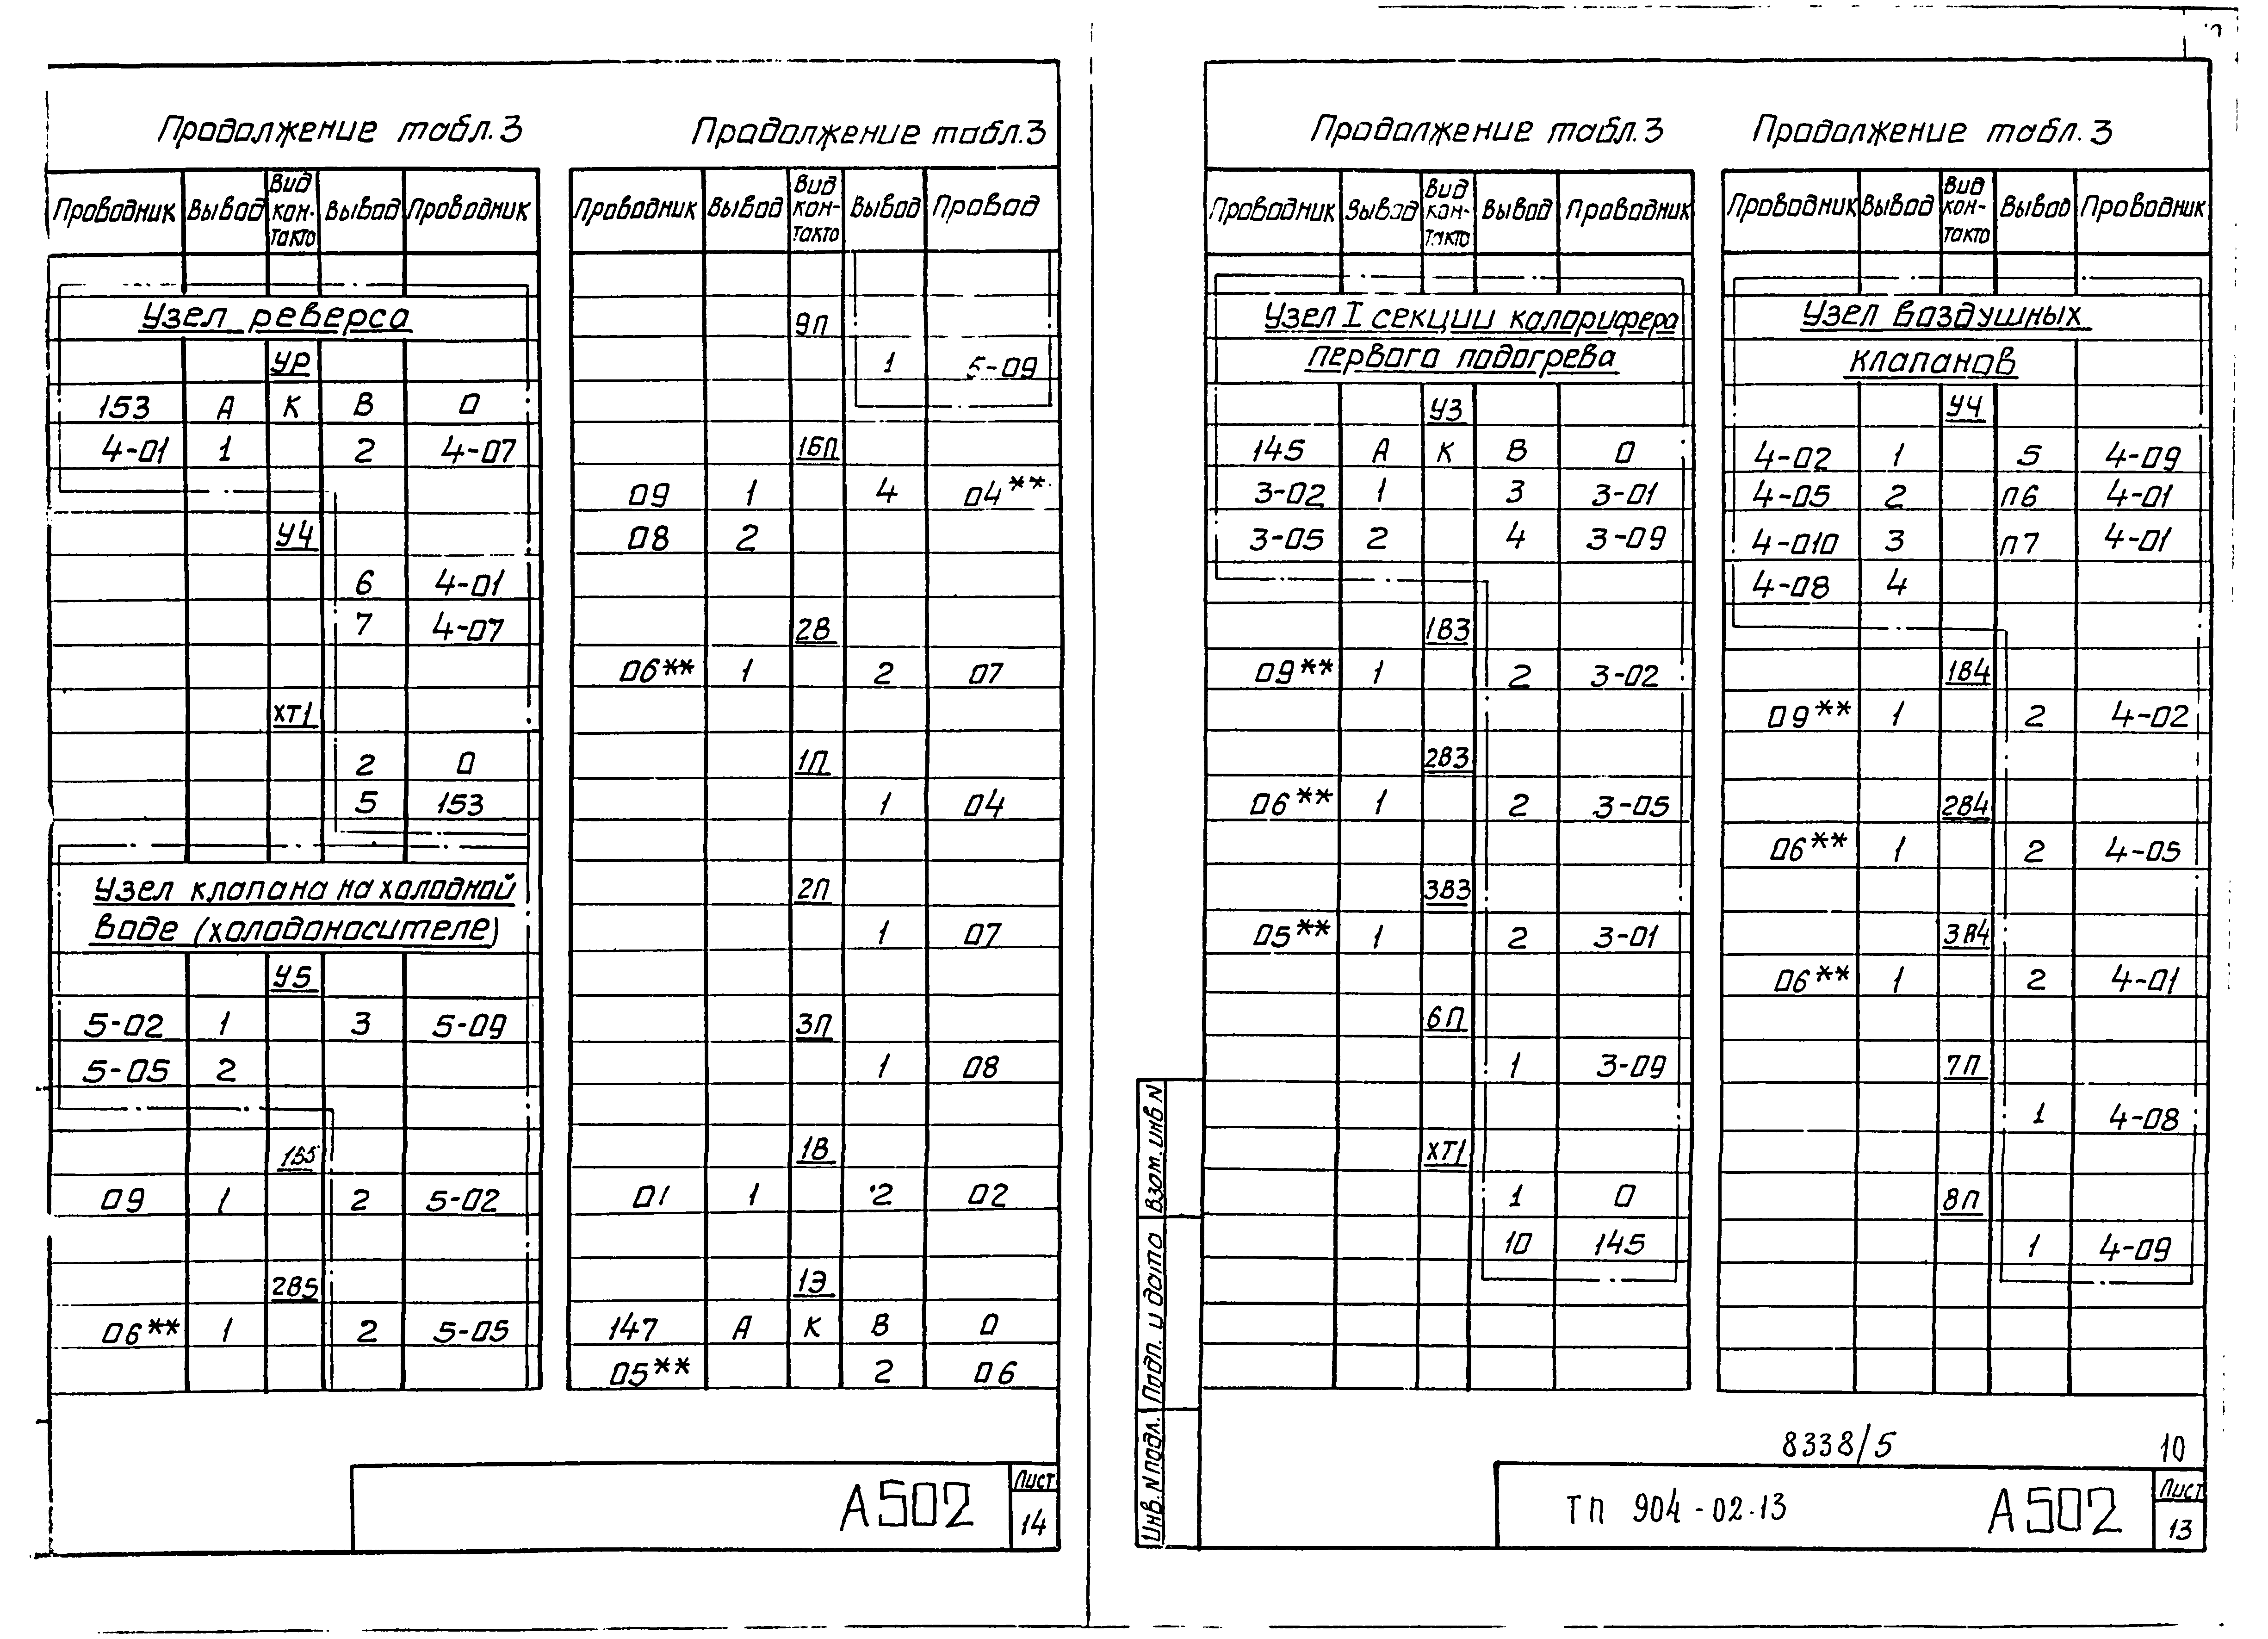 Продолжение табл.3
Проводник Вывод Вид кон-такта Вывод Проводник
Узел реверса
УР
153 А К В 0
4-01 1 2 4-07
У4
6 4-01
7 4-07
ХТ1
2 0
5 153
Узел клапана на холодной
воде (холодоносителе)
У5
5-02 1 3 5-09
5-05 2
1В5
09 1 2 5-02
2В5
06** 1 2 5-05
Продолжение табл.3
Проводник Вывод Вид кон-такта Вывод Провод
9П
1 5-09
1БП
09 1 4 04**
08 2
2В
06** 1 2 07
1П
1 04
2П
1 07
3П
1 08
1В
01 1 2 02
1Э
147 А К В 0
05** 2 06
А502
Лист
14
Продолжение табл.3
Проводник Вывод Вид кон-такта Вывод Проводник
Узел I секции калорифера
первого подогрева
У3
145 А К В 0
3-02 1 3 3-01
3-05 2 4 3-09
1В3
09** 1 2 3-02
2В3
06** 1 2 3-05
3В3
05** 1 2 3-01
6П
1 3-09
ХТ1
1 0
10 145
Продолжение табл.3
Проводник Вывод Вид кон-такта Вывод Проводник
Узел воздушных
клапанов
У4
4-02 1 5 4-09
4-05 2 п6 4-01
4-010 3 п7 4-01
4-08 4
1В4
09** 1 2 4-02
2В4
06** 1 2 4-05
3В4
06** 1 2 4-01
7П
1 4-08
8П
1 4-09
Взам. инв N
Подп. и дата
Инв. N подл.
8338/5 10
ТП 904-02.13 А502
Лист
13